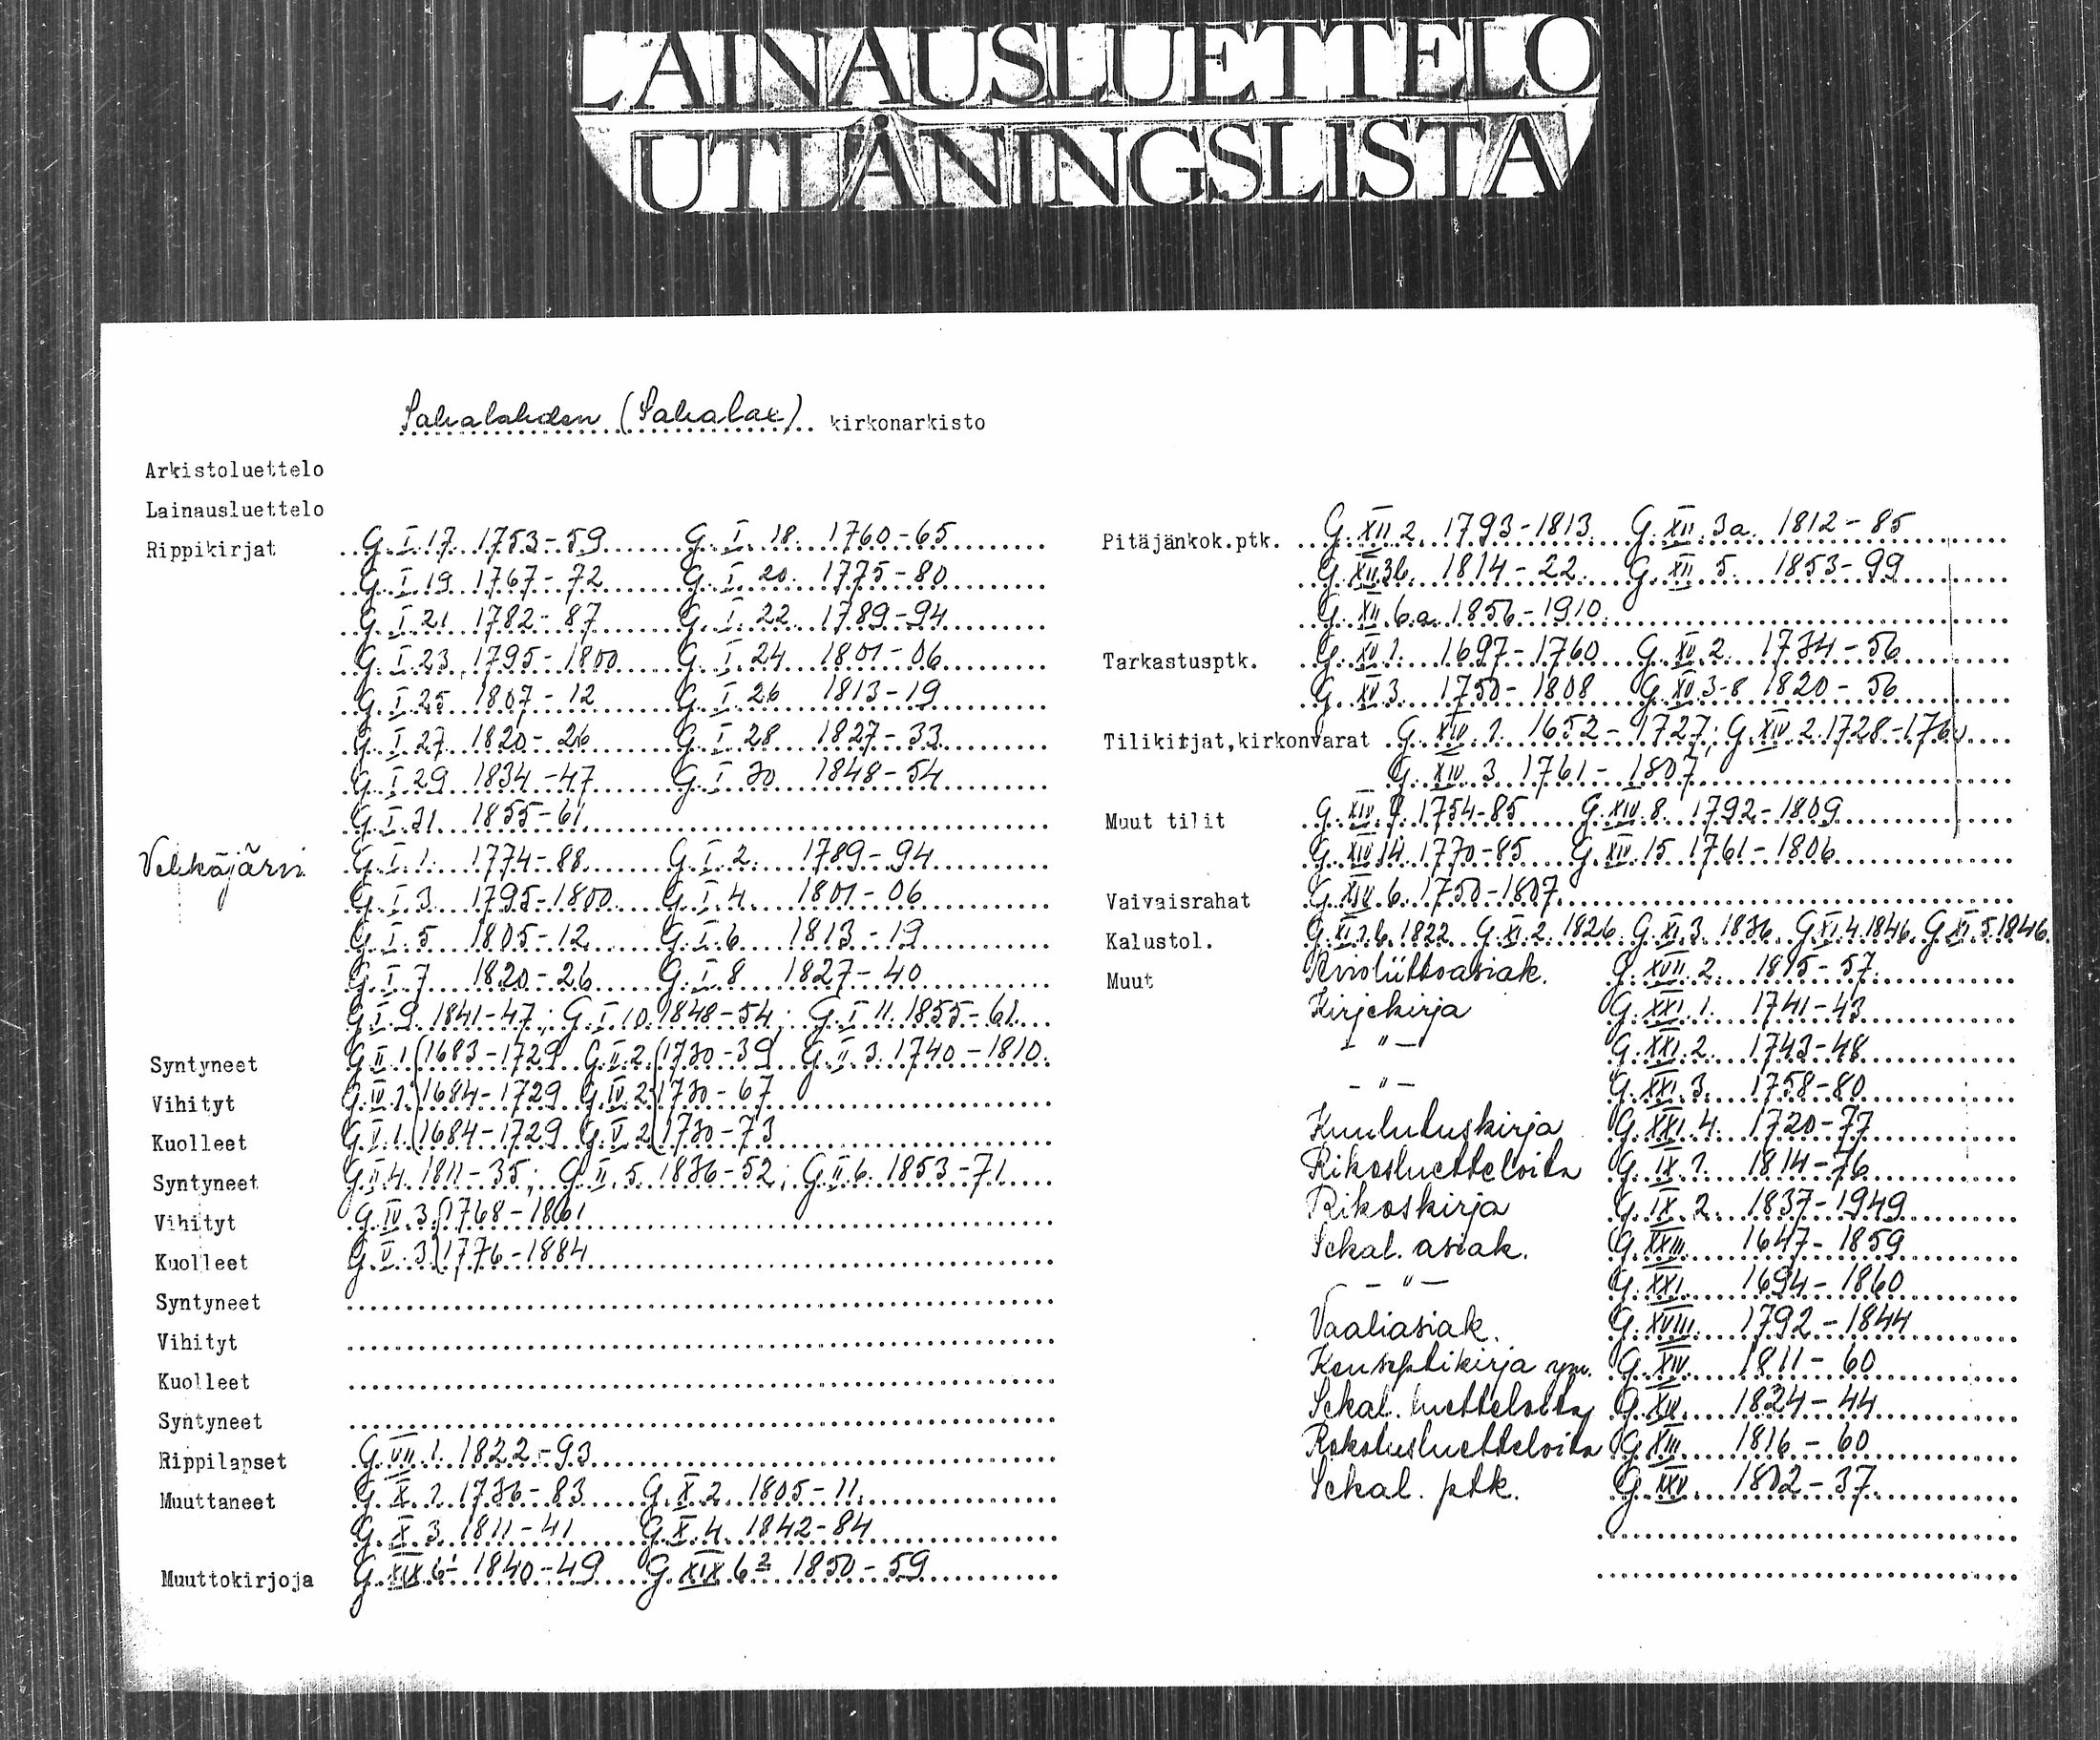 LAINAUSLUETTELO
UTLÅNINGSLISTA
Sahalahden (Sahalax) kirkonarkisto
Arkistoluettelo
Lainausluettelo
Rippikirjat G. I. 17 1753-59 G. I. 18. 1760-65
G. I. 19 1767-72 G. I. 20. 1775-80
G. I. 21 1782-87 G. I. 22 1789-94
G. I. 23 1795-1800 G. I. 24 1801-06
G. I. 25 1807-12 G. I. 26 1813-19
G. I. 27 1820-26 G. I. 28 1827-33
G. I. 29 1834-47 G. I. 30 1848-54
G. I. 31 1855-61
G. I. 1. 1774-88 G. I. 2. 1789-94
G. I. 3 1795-1800 G. I. 4. 1801-06
G. I. 5 1805-12 G. I. 6 1813-19
G. I. 7 1820-26 G. I. 8 1827-40
G. I. 9. 1841-47; G. I. 10. 1848-54; G. I. 11. 1855-61
Syntyneet G. II. 1. 1683-1729 G. II. 2. 1730-39 G. II. 3. 1740-1810.
Vihityt G. IV. 1. 1684-1729 G. IV. 2. 1730-67
Kuolleet G. V. 1. 1684-1729 G. V. 2 1730-73
Syntyneet G. II. 4. 1811-35; G. II. 5. 1836-52; G. II. 6. 1853-71
Vihityt G. IV. 3. 1768-1861
Kuolleet G. V. 3 1776-1884
Syntyneet
Vihityt
Kuolleet
Syntyneet
Rippilapset G. VII. 1. 1822-93
Muuttaneet G. X. 1. 1736-83 G. X. 2. 1805-11.
G. X. 3. 1811-41 G. X. 4. 1842-84
Muuttokirjoja G. XIX 6¹ 1840-49 G. XIX 6² 1850-59
Pitäjänkok.ptk. G. XII. 2. 1793-1813 G. XII. 3a. 1812-85
G. XII 3b. 1814-22. G. XII. 5. 1853-99
G. XII. 6.a. 1856-1910.
Tarkastusptk. G. XV. 1. 1697-1760 G. XV. 2. 1734-56
G. XV. 3. 1750-1808 G. XV. 3-8 1820-56
Tilikirjat, kirkonvarat G. XIV. 1. 1652-1727; G. XIV. 2. 1728-1760
G. XIV. 3. 1761-1807
Muut tilit G. XIV. 7. 1754-85 G. XIV. 8. 1792-1809
G. XIV 14. 1770-85 G. XIV. 15 1761-1806
Vaivaisrahat G. XIV. 6. 1750-1807.
Kalustol. G. XI. 1.b. 1822 G. XI. 2. 1826. G. XI. 3. 1836. G XI. 4. 1846. G XI. 5. 1846.
Muut Avioliittoasiak. G. XVII. 2. 1815-57
Kirjekirja G. XXI. 1. 1741-43
- " - G. XXI. 2. 1743-48
- " - G. XXI. 3. 1758-80
Kuulutuskirja G. XXI. 4. 1720-77
Rikosluetteloita G. IX. 1. 1814-76
Rikoskirja G. IX. 2. 1837-1949
Sekal. asiak. G. XXIII. 1647-1859
- " - G. XXI. 1694-1860
Vaaliasiak. G. XVIII. 1792-1844
Konseptikirja ym. G. XIV. 1811-60
Sekal. luetteloita G. XII. 1824-44
Rokotusluetteloita G. XIII 1816-60
Sekal. ptk. G. XXV. 1802-37